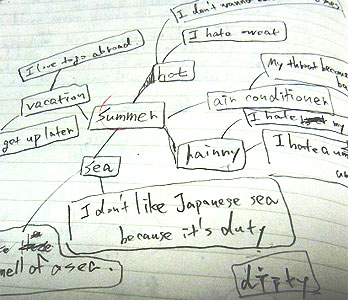 I don't wanna
I hate sweat
hot
I love to go abroad
My throat became
vacation
air conditioner
summer
I hate my
get up later
hainny
I hate a
sea
I don't like Japanese sea
because it's duty
smell of a sea.
dirty